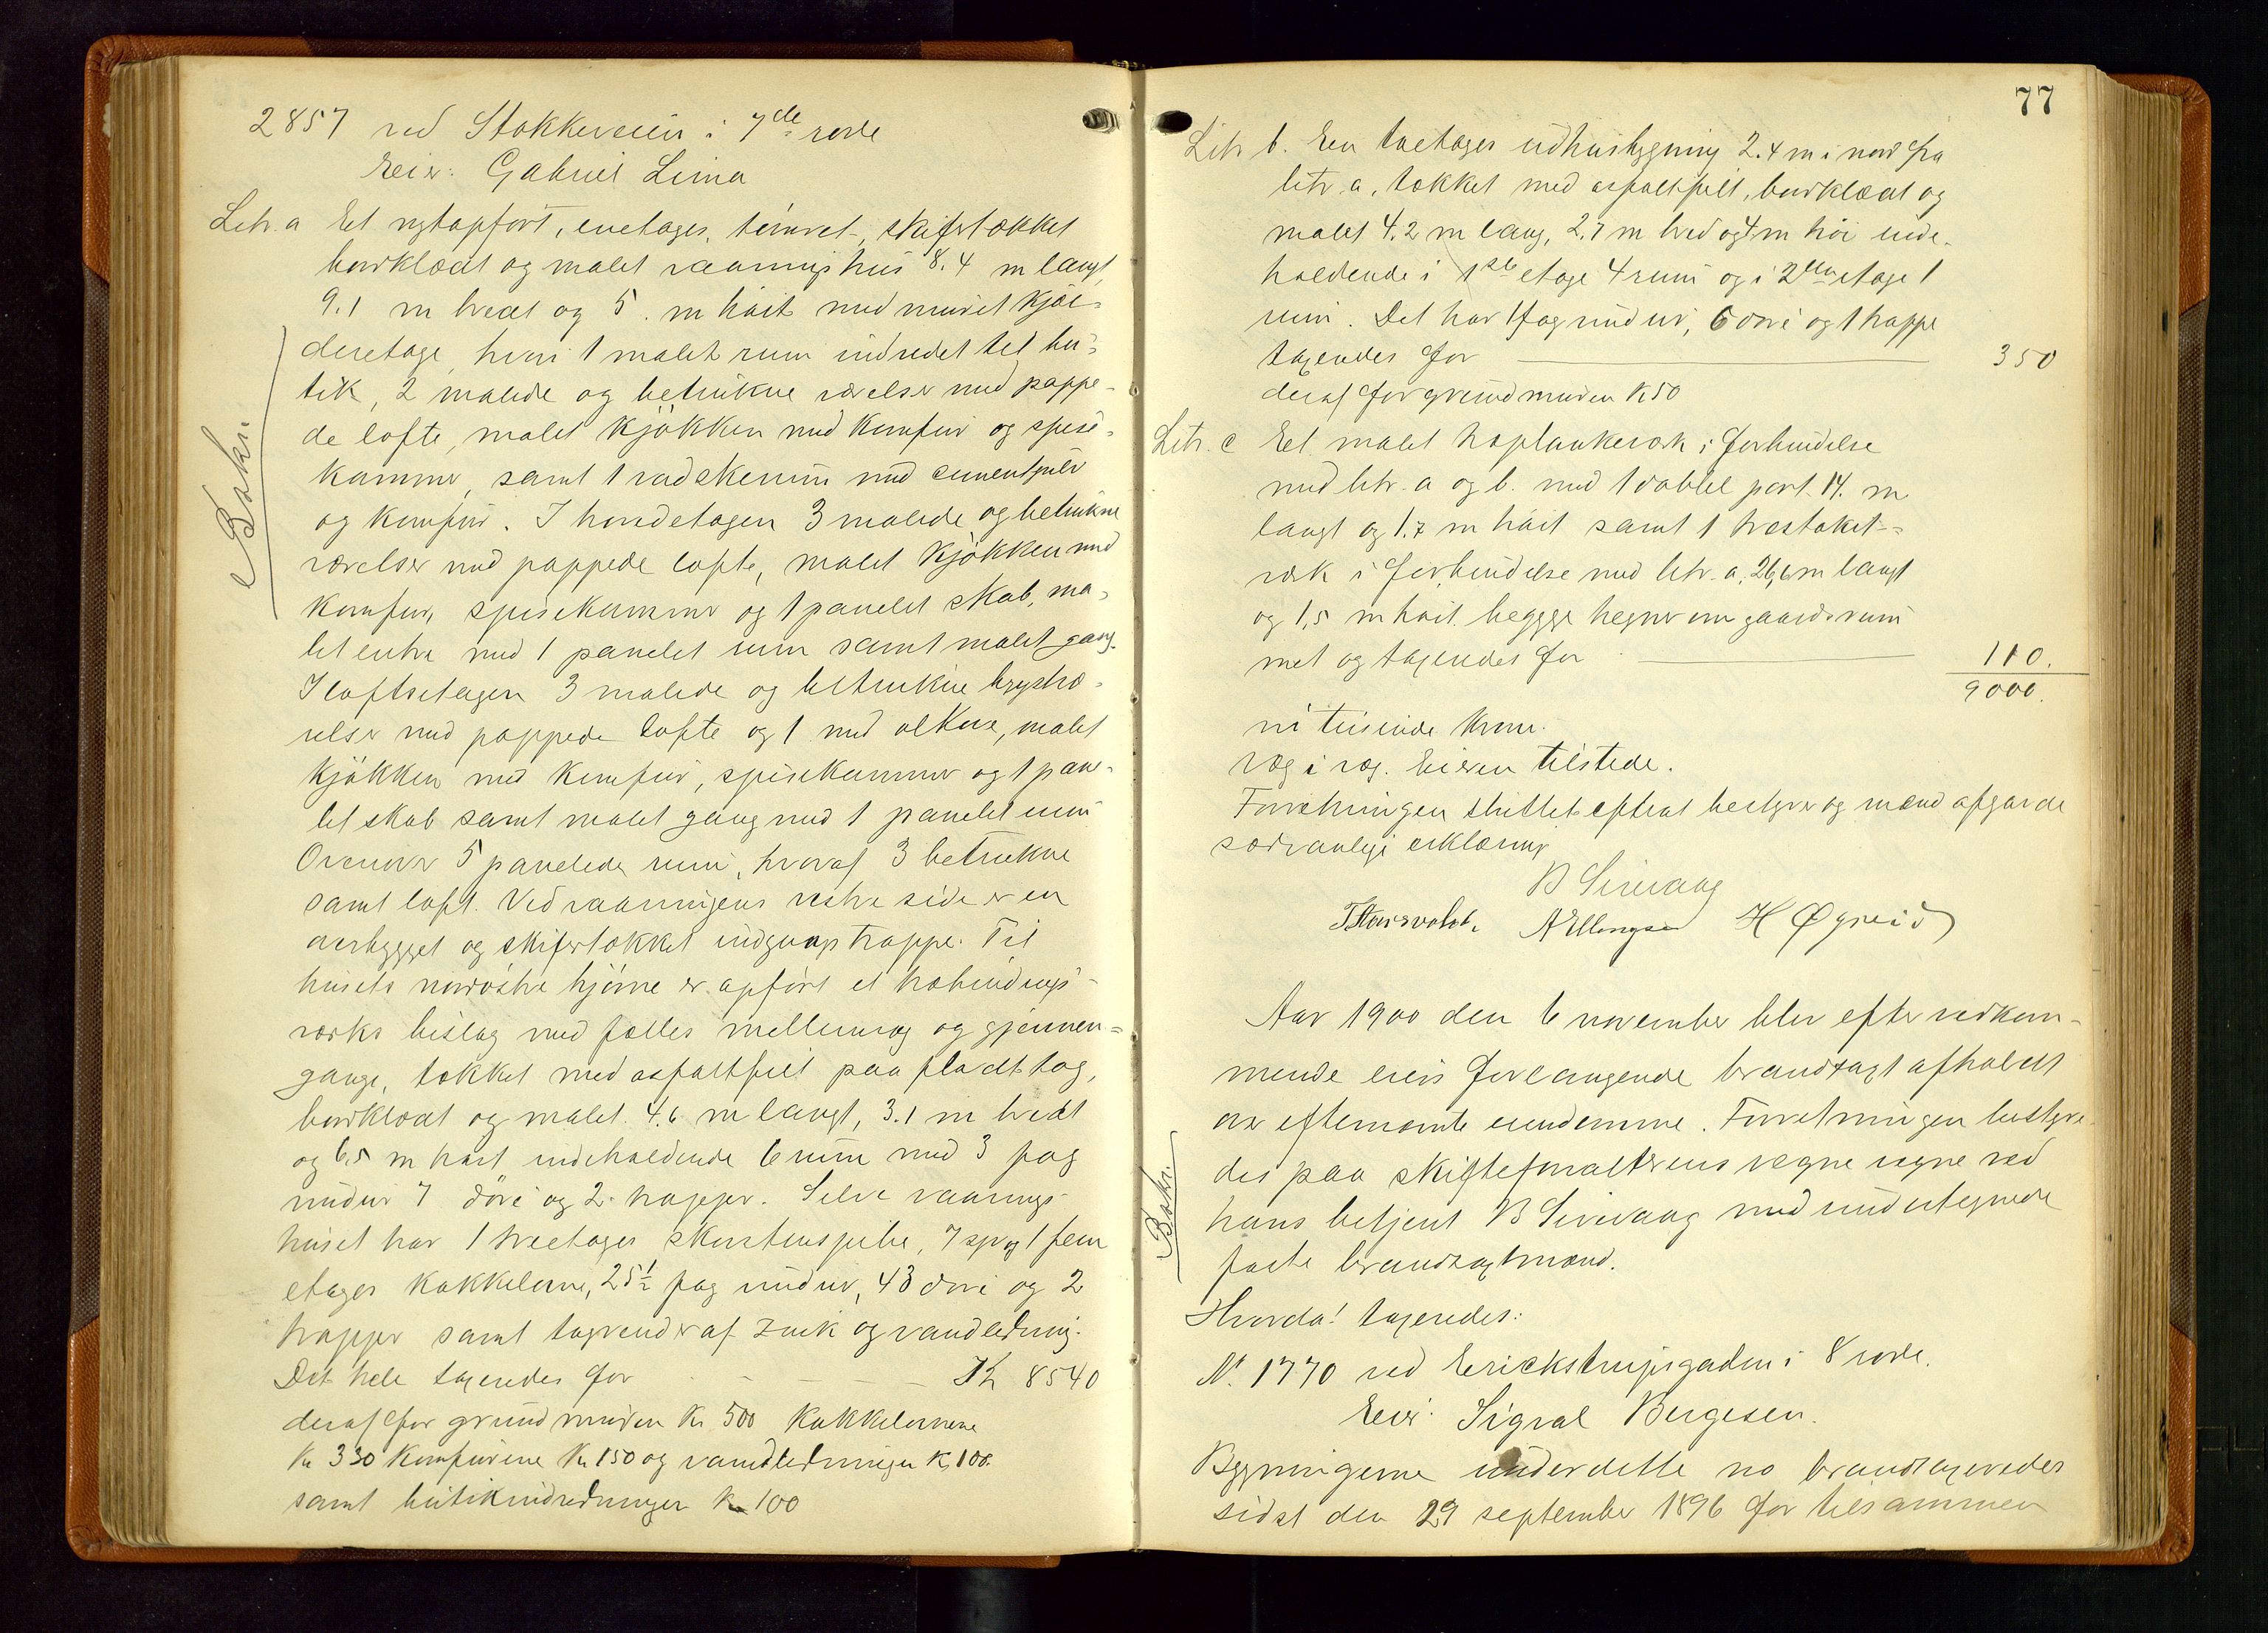 2857 ved Stokkeveien i 7de rode
Eier: Gabriel Lima
Litr. a Et nytopført, enetages, tømret, skifertækket
bordklædt og malet vaaningshus 8.4 m langt,
9.1 m bredt og 5. m høit med muret kjæl-
deretage, hvori 1 malet rum indredet til bu-
tik, 2 malede og betrukne værelser med pappe-
de lofte, malet kjøkken med komfur og spise-
kammer, samt 1 vadskerum med cementgulv
og komfur. I hovedetagen 3 malede og betrukne
værelser med pappede lofte, malet kjøkken med
komfur, spisekammer og 1 panelet skab, ma-
let entre med 1 panelet rum samt malet gang.
I loftsetagen 3 malede og betrukne brystvæ-
relser med pappede lofte og 1 med alkove, malet
kjøkken med komfur, spisekammer og 1 pane-
let skab samt malet gang med 1 panelet rum
Ovenover 5 panelede rum, hvoraf 3 betrukne
samt loft. Ved vaaningens vestre side er en
overbygget og skifertækket indgangstrappe. Til
husets nordøstre hjørne er opført et træbindings-
værks bislag med fælles mellemvæg og gjennem-
gange, tækket med asfaltfilt paa pladt tag,
bordklædt og malet. 4.6 m langt, 3.1 m bredt
og 6,5 m høit indeholdende 6 rum med 3 fag
vinduer 7 døre og 2 trapper. Selve vaanings-
huset har 1 treetages skorstenspibe, 7 sp og 1 fem
etages kakkelovne, 25½ fag vinduer, 43 døre og 2
trapper samt tagrender af zink og vandledning.
Det hele taxeredes for - - - Kr. 8540
deraf for grundmuren Kr 500 kakkelovnene
Kr 330 komfurene Kr 150 og vandledningen Kr 100.
samt butikindredningen Kr 100
Bokn.
77
Litr b. En toetages udhusbygning 2.4 m i nord fra
litr. a, tækket med asfaltfilt, bordklædt og
malet 4.2 m lang, 2.7 m bred og 4 m høi inde-
holdende i 1ste etage 4 rum og i 2den etage 1
rum. Det har 1 fag vinduer, 6 døre og 1 trappe
taxeredes for 350
deraf for grundmuren K 50
Litr. c Et malet træplankeværk i forbindelse
med litr. a og b. med 1 dobbel port. 14. m
langt og 1.7 m høit samt 1 træstaket-
værk i forbindelse med litr. a, 26,6 m langt
og 1,5 m høit begge hegner om gaardsrum
met og taxeredes for 110.
9000.
ni tusinde kroner.
Væg i væg. Eieren tilstede.
Forretningen sluttet efterat bestyrer og mænd afgav de
sædvanlige erklæring
B Sirevaag
A Ellingsen H Øgreid
Aar 1900 den 6 november blev efter vedkom-
mende eiers forlangende brandtaxt afholdt
over efternævnte eiendomme. Forretningen bestyre-
des paa skifteforvalterens vegne vegne ved
hans betjent B Sirevaag med undertegnede
faste brandtaxtmænd.
Hvorda! taxeredes:
No. 1770 ved Erichstrupsgaden i 8 rode.
Eier: Sigval Bergesen.
Bygningerne under dette no brandtaxeredes
sidst den 29 september 1896 for tilsammen
Bokn.